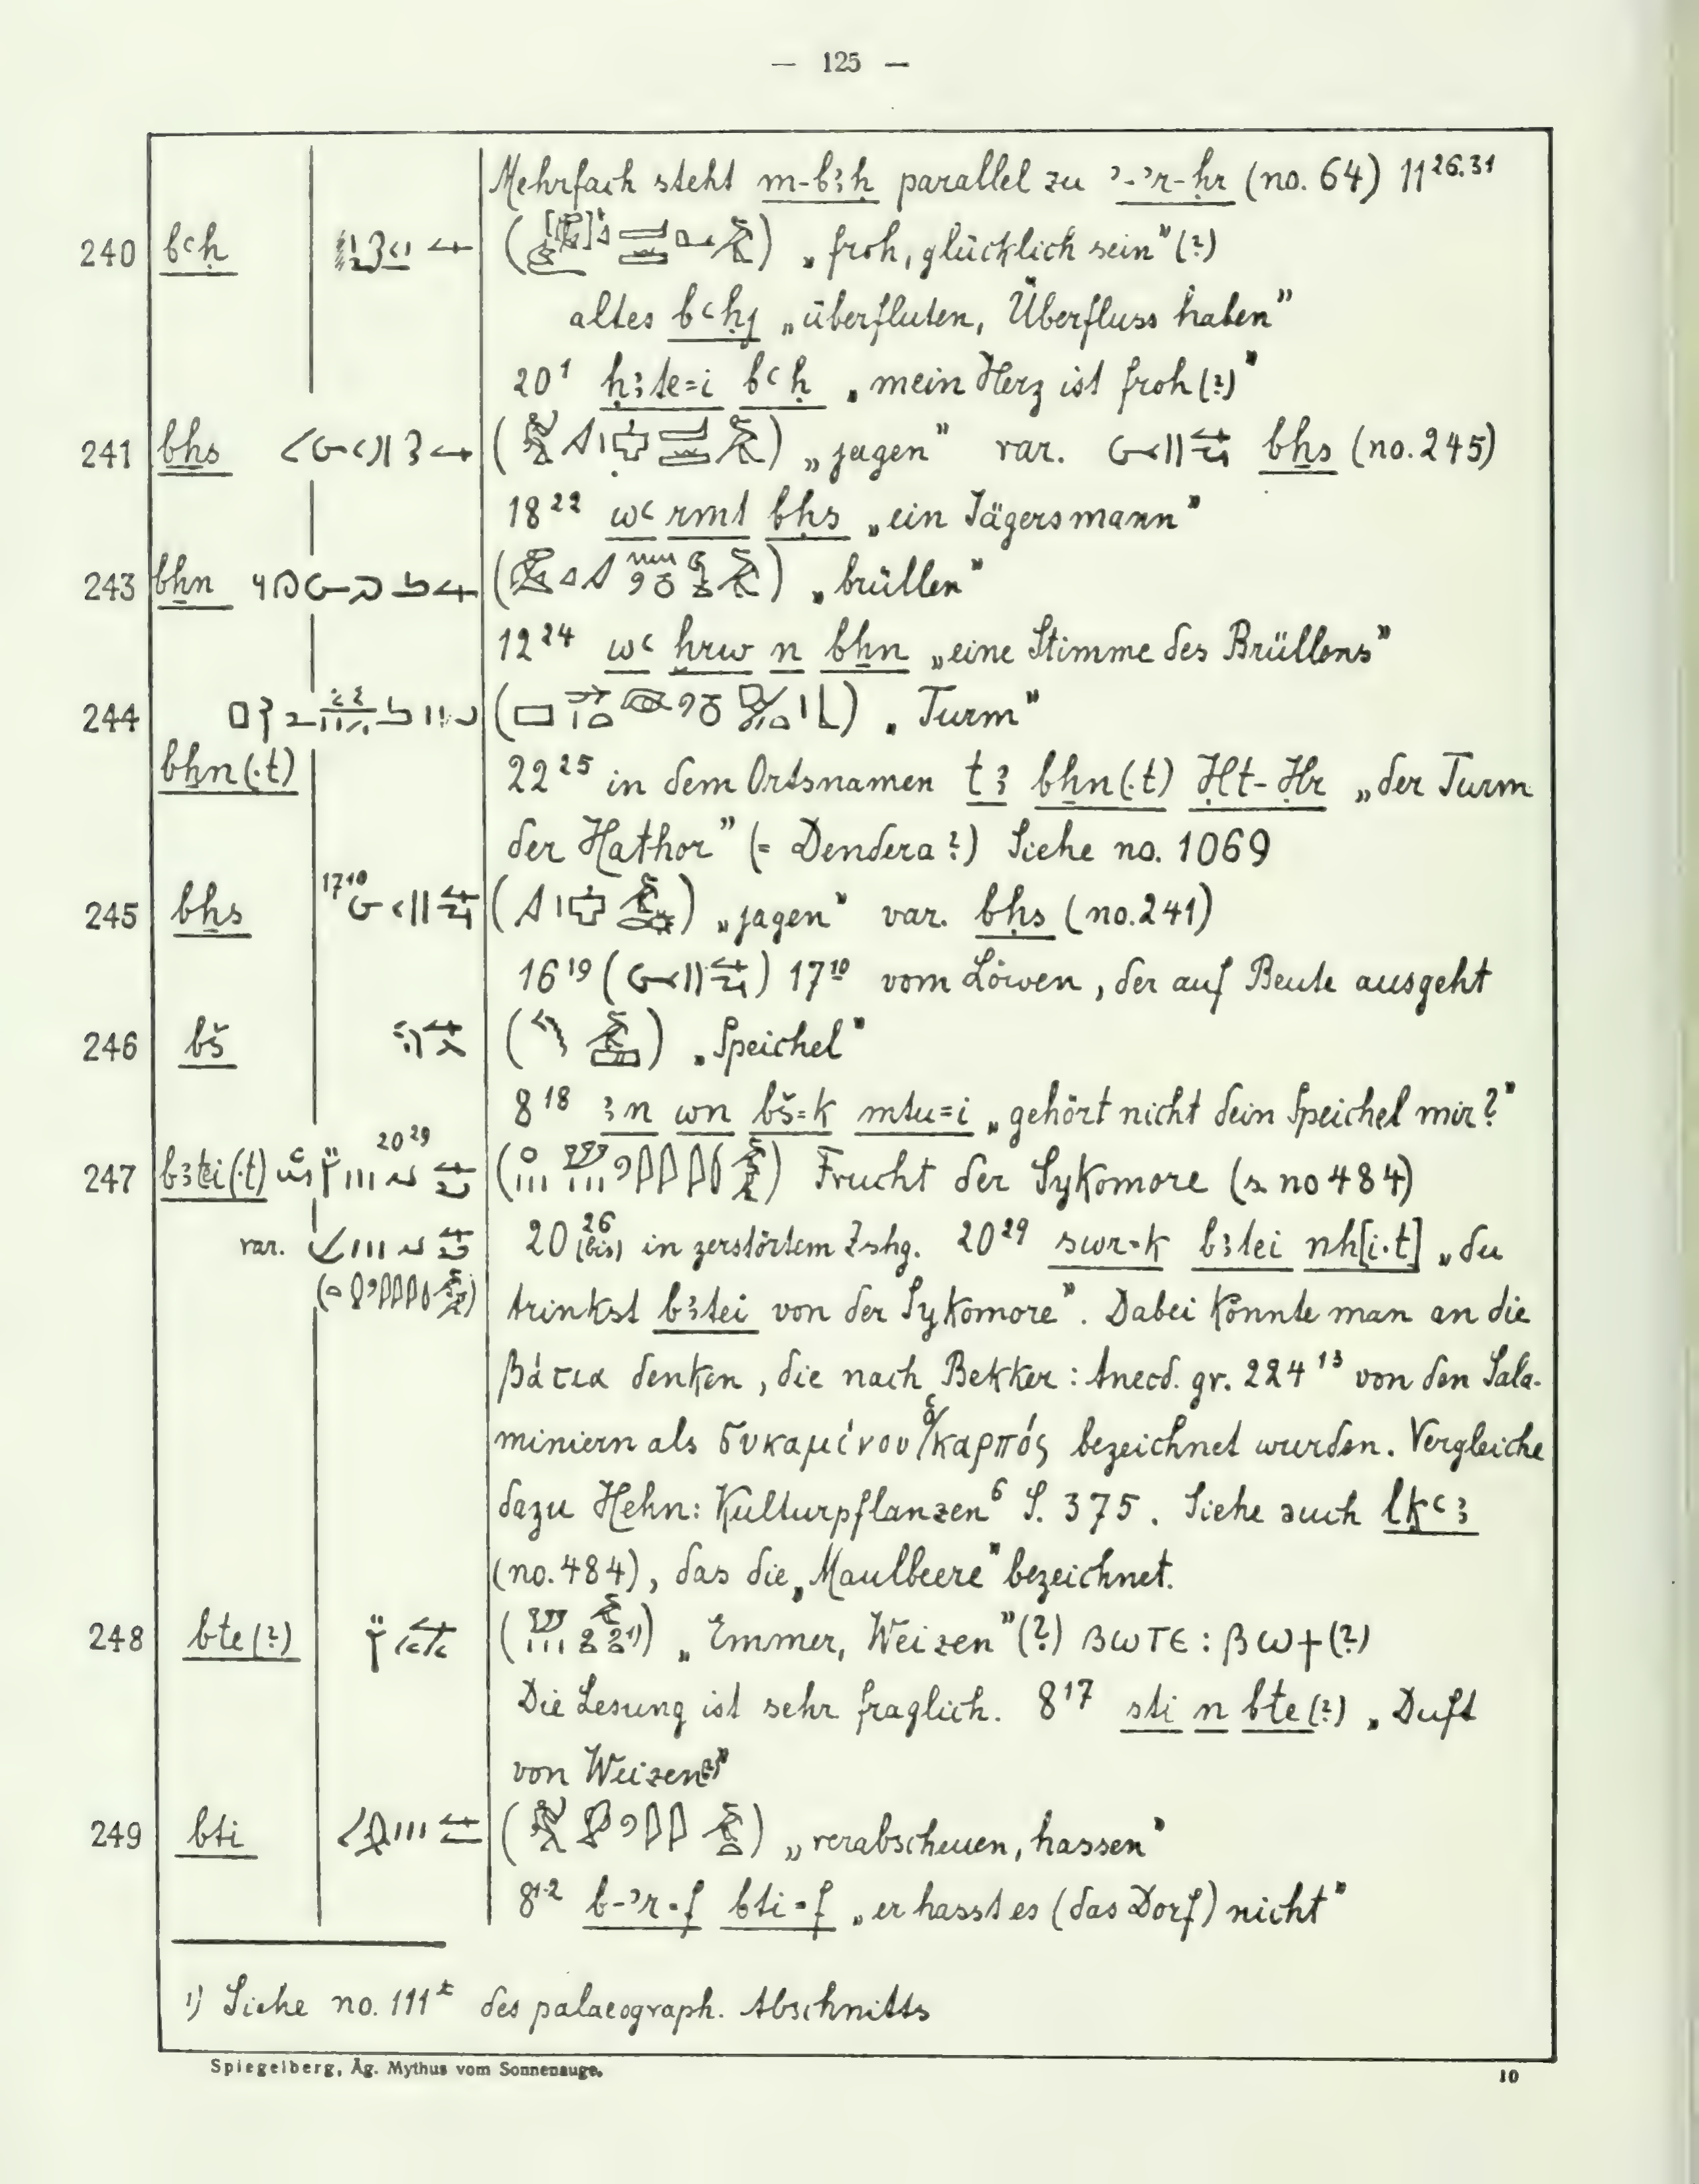 — 125 —
Mehrfach steht m-bꜣḥ parallel zu ʾ-ʾr-ḥr (no. 64) 11 26.31
240 bꜥḥ „froh, glücklich sein” (?)
altes bꜥḥj „überfluten, Überfluss haben”
20 1 ḥꜣte=i bꜥḥ „mein Herz ist froh (?)”
241 bḥs „jagen” var. bẖs (no. 245)
18 22 wꜥ rmt bḥs „ein Jägersmann”
243 bẖn „brüllen”
12 24 wꜥ ḫrw n bẖn „eine Stimme des Brüllens”
244 „Turm”
bẖn(.t) 22 25 in dem Ortsnamen tꜣ bẖn(.t) Ḥt-Ḥr „der Turm
der Hathor” (= Dendera?) Siehe no. 1069
245 bẖs 17 10 „jagen” var. bḥs (no. 241)
16 19 17 10 vom Löwen, der auf Beute ausgeht
246 bš „Speichel”
8 18 ꜣn wn bš=k mtu=i „gehört nicht dein Speichel mir?”
247 bꜣtei(.t) 20 29 Frucht der Sykomore (s. no 484)
var. 20 26 (bis) in zerstörtem Zshg. 20 29 swr=k bꜣtei nh[i.t] „du
trinkst bꜣtei von der Sykomore”. Dabei könnte man an die
βάτια denken, die nach Bekker: Anecd. gr. 224 13 von den Sala-
miniern als συκαμίνου ὁ καρπός bezeichnet wurden. Vergleiche
dazu Hehn: Kulturpflanzen 6 S. 375. Siehe auch lḳꜥꜣ
(no. 484), das die „Maulbeere” bezeichnet.
248 bte (?) 1) „Emmer, Weizen” (?) ⲃⲱⲧⲉ : ⲃⲱϯ (?)
Die Lesung ist sehr fraglich. 8 17 sti n bte (?) „Duft
von Weizen (?)”
249 bti „verabscheuen, hassen”
8 1-2 b-ʾr=f bti=f „er hasst es (das Dorf) nicht”
1) Siehe no. 111 des palaeograph. Abschnitts
Spiegelberg, Äg. Mythus vom Sonnenauge. 10